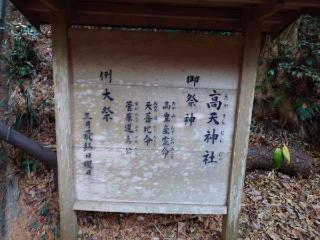 高天神社
御祭神
高皇産霊命
天菩比命
菅原道真公
例大祭
三月最終日曜日